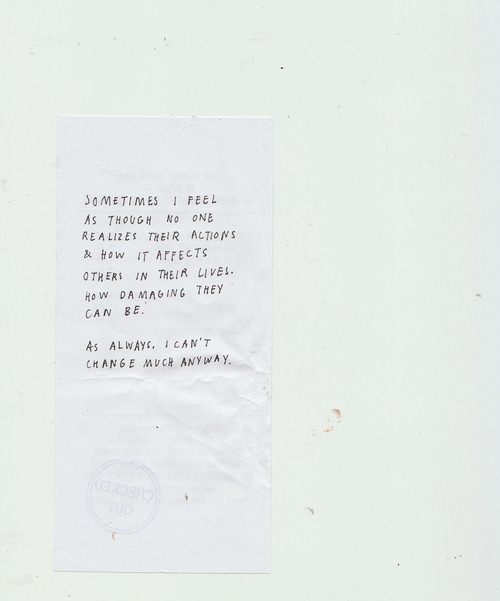 SOMETIMES I FEEL
AS THOUGH NO ONE
REALIZES THEIR ACTIONS
& HOW IT AFFECTS
OTHERS IN THEIR LIVES.
HOW DAMAGING THEY
CAN BE.
AS ALWAYS, I CAN'T
CHANGE MUCH ANYWAY.
CHECKED
OUT